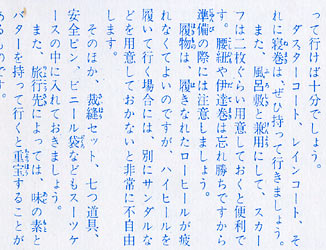 って行けば十分でしょう。
ダスターコート、レインコート、そ
れに寝巻は、ぜひ持って行きましょう。
また、風呂敷と兼用にして、スカー
フは二枚ぐらい用意しておくと便利で
す。腰紐や伊達巻は忘れ勝ちですから
準備の際には注意しましょう。
履物は、履きなれたローヒールが疲
れなくてよいのですが、ハイヒールを
履いて行く場合には、別にサンダルな
どを用意しておかないと非常に不自由
します。
そのほか、裁縫セット、七つ道具、
安全ピン、ビニール袋などもスーツケ
ースの中に入れておきましょう。
また、旅行先によっては、味の素と
バターを持って行くと重宝することが
あるものです。